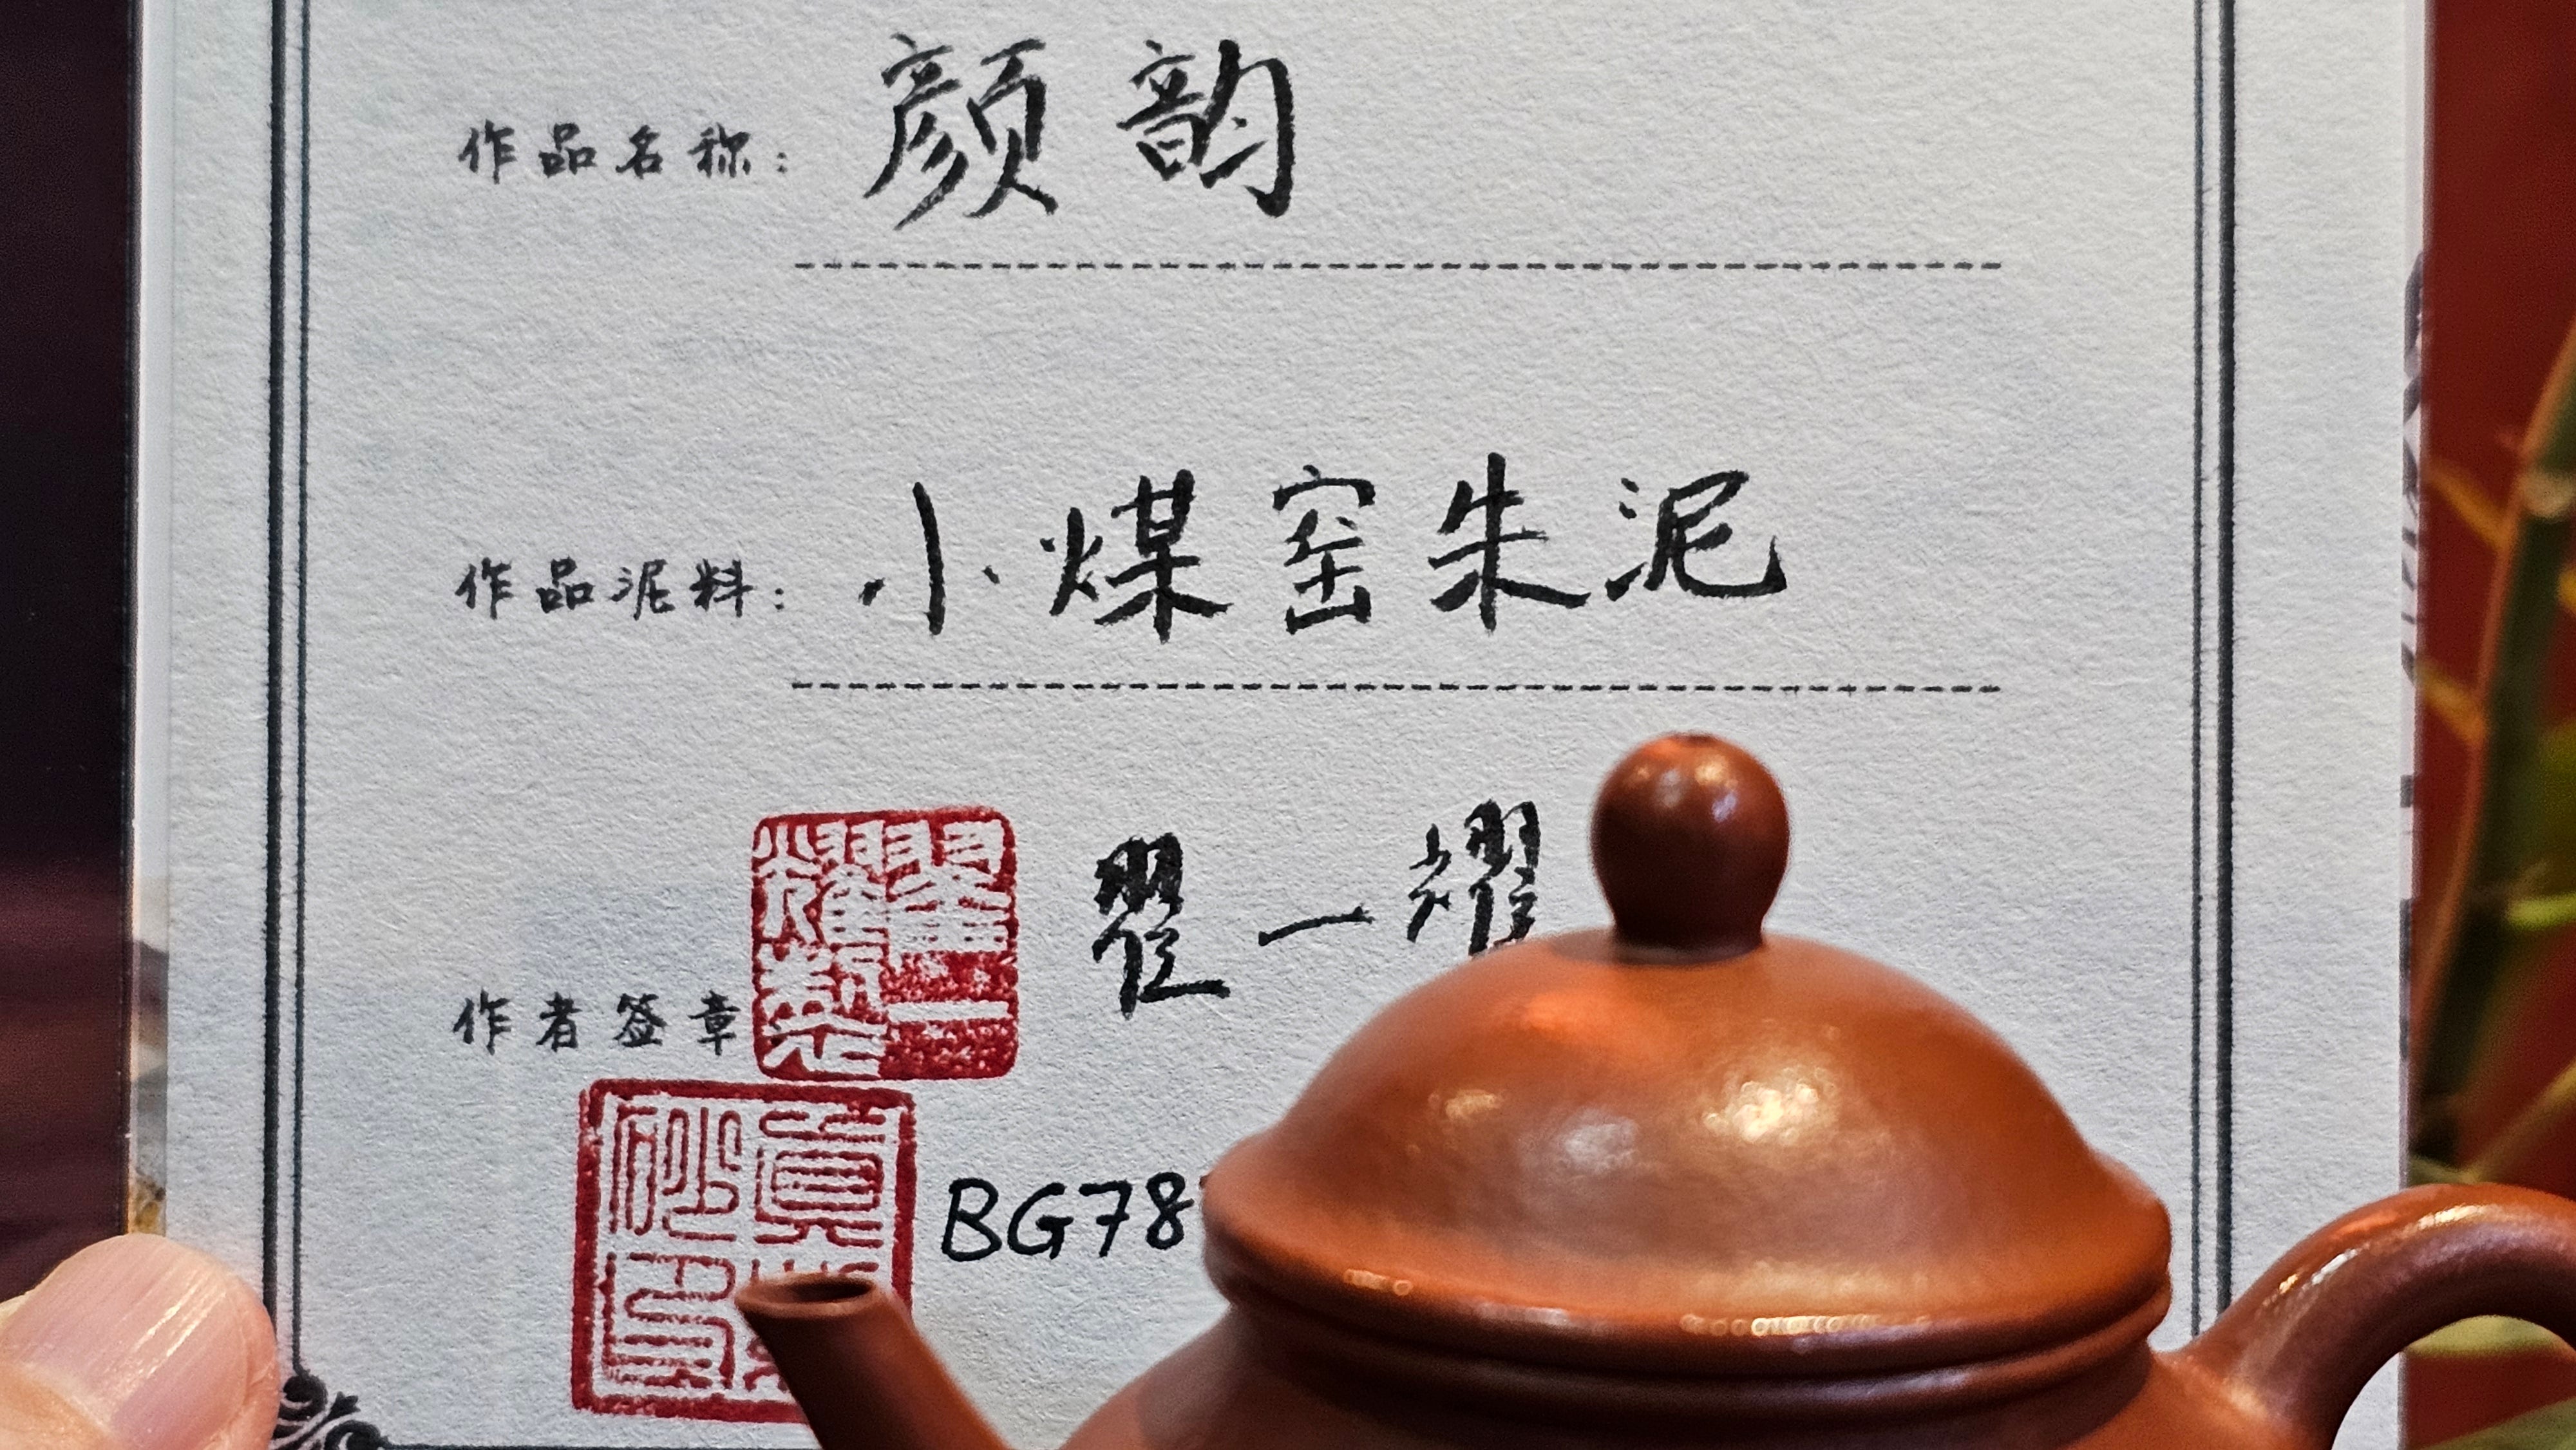 作品名称：颜韵
作品泥料：小煤窑朱泥
作者签章 翟一耀
翟一耀製
BG78